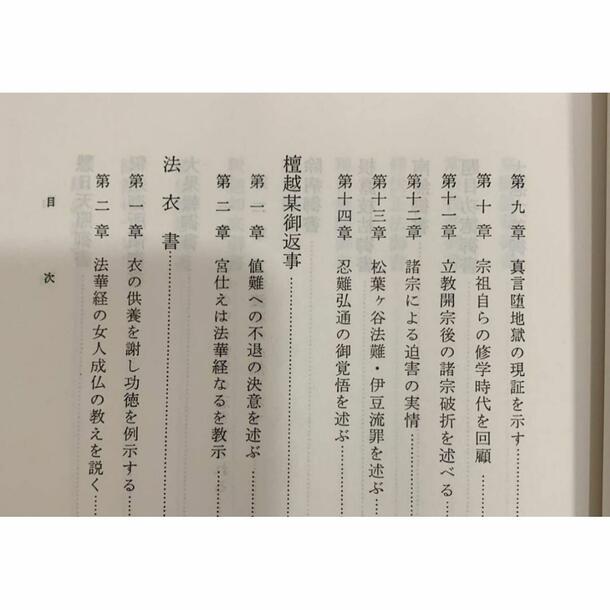 第九章 真言堕地獄の現証を示す
第十章 宗祖自らの修学時代を回顧
第十一章 立教開宗後の諸宗破折を述べる
第十二章 諸宗による迫害の実情
第十三章 松葉ヶ谷法難・伊豆流罪を述ぶ
第十四章 忍難弘通の御覚悟を述ぶ
檀越某御返事
第一章 値難への不退の決意を述ぶ
第二章 宮仕えは法華経なるを教示
法衣書
第一章 衣の供養を謝し功徳を例示する
第二章 法華経の女人成仏の教えを説く
目次